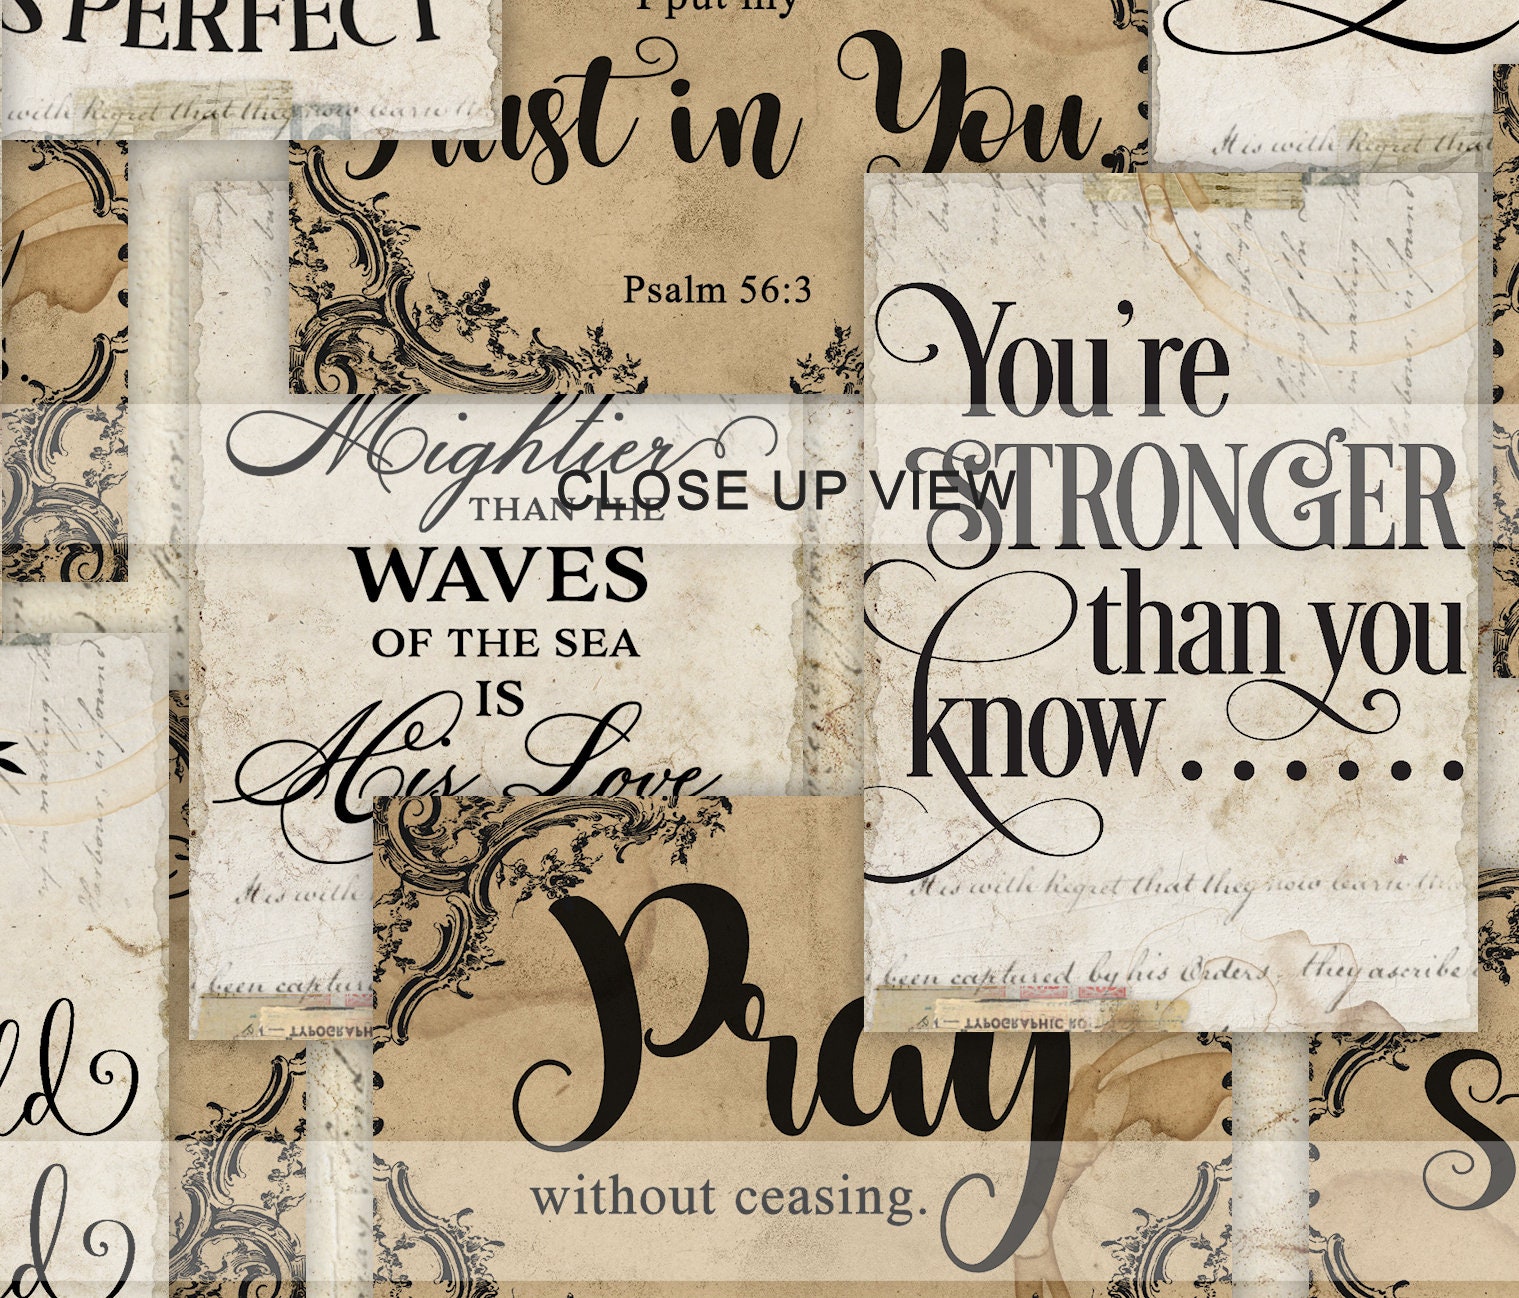 PERFECT
with Regret that they now learn
I put my
Trust in You.
Psalm 56:3
It is with Regret that
Mightier
THAN THE
WAVES
OF THE SEA
IS
His Love
It is with
been captured
TYPOGRAPH
CLOSE UP VIEW
You're
STRONGER
than you
know......
It is with Regret that they now learn
been captured by his Orders. they ascribe
TYPOGRAPHIC
Pray
without ceasing.